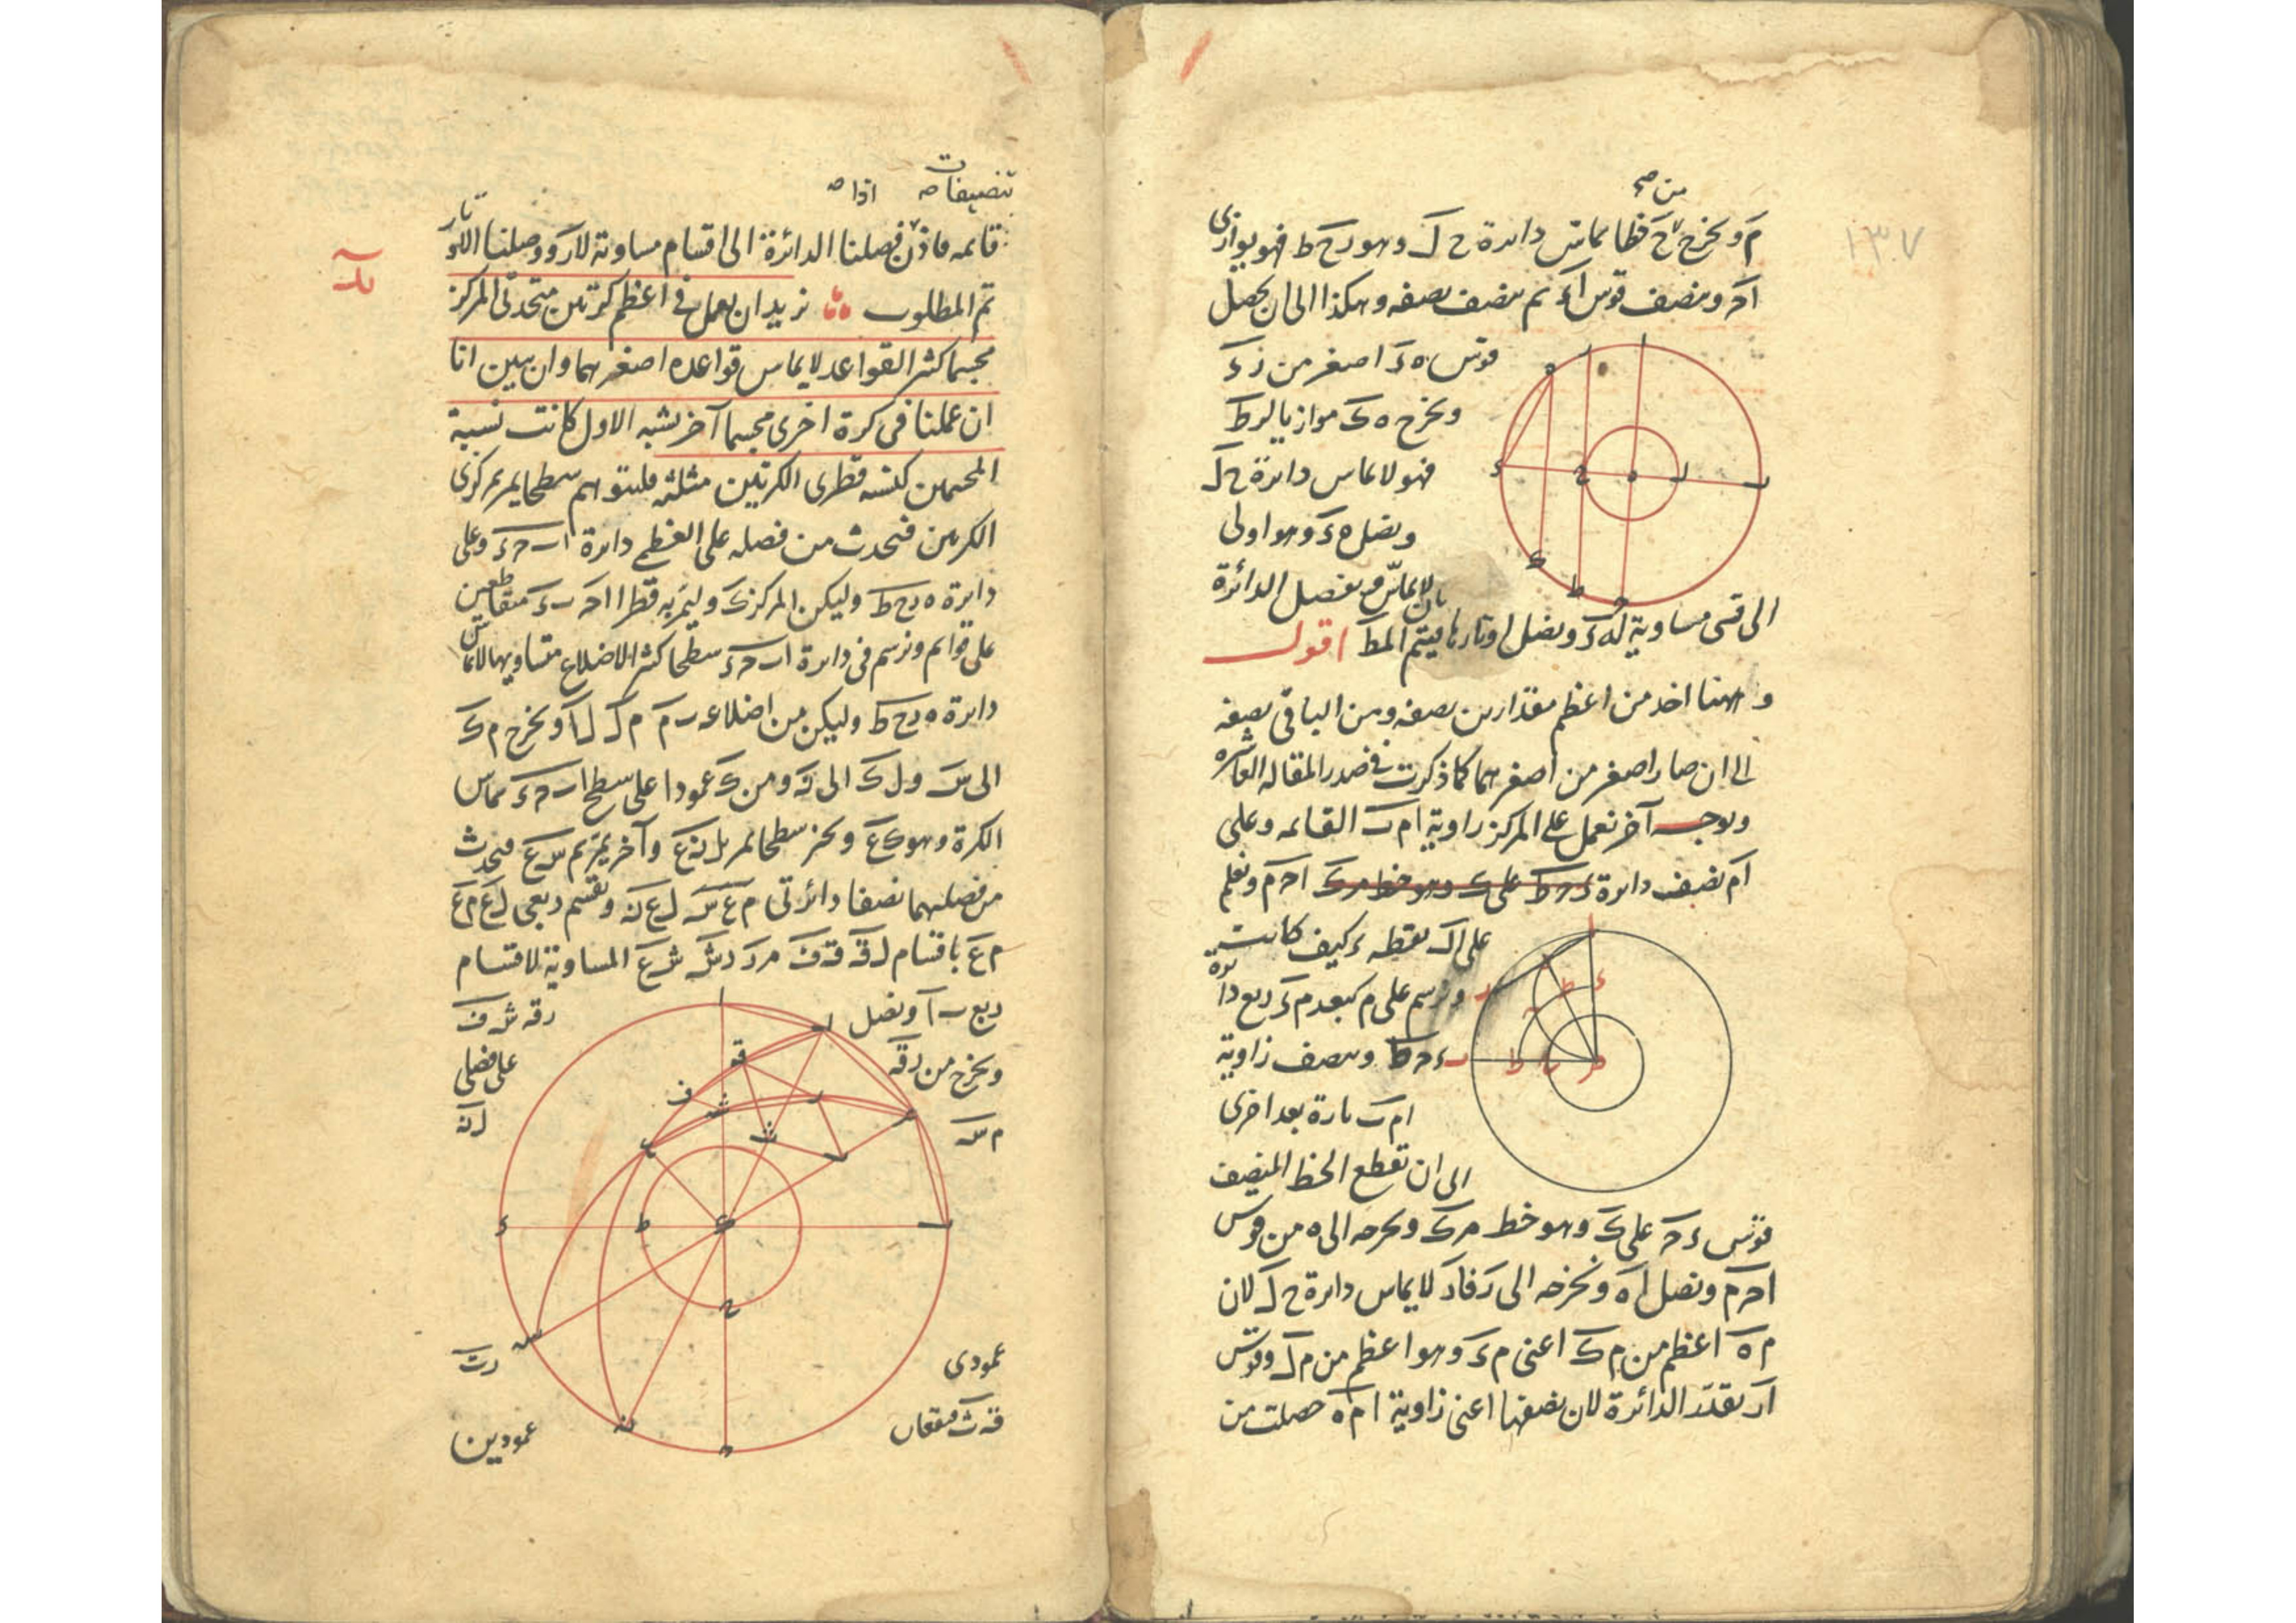 ١٣٧
من صح
م ونخرج ح خطا يماس دائرة ح ل وهو رح ط فهو يوازى
اح وننصف قوس اء ثم ننصف نصفه وهكذا الى ان يحصل
قوس ه ء اصغر من ز ء
ونخرج ه ك موازيا لرط
فهو لا يماس دائرة ح ل
ونصل ه ء وهو اولى
بان لا يماس ونفصل الدائرة
الى قسى مساوية له ء ونصل اوتارها ليتم المط اقول
وههنا اخذ من اعظم مقدارين نصفه ومن الباقى نصفه
الى ان صار اصغر من اصغرهما كما ذكرت فى صدر المقاله العاشره
وبوجه آخر نعمل على المركز زاوية ام ب القائمه وعلى
ام نصف دائرة ء ح ط على ك وهو خط م ك اح م ونعلم
على ال نقطه ء كيف كانت
ونرسم على م ببعد م ء ربع دائرة
ء ح ط وننصف زاوية
ام ب تارة بعد اخرى
الى ان تقطع الخط المنصف
قوس ء ح على ك وهو خط م ك ونخرجه الى ه من قوس
اح م ونصل اه ونخرجه الى ر فار لا يماس دائرة ح ل لان
م ه اعظم من م ك اعنى م ء وهو اعظم من م ل وقوس
ار تقدر الدائرة لان نصفها اعنى زاوية ام ه حصلت من
تنصيفات اذا
قائمه فاذن فصلنا الدائرة الى اقسام مساوية لار ووصلنا الاوتار
تم المطلوب نريد ان نعمل فى اعظم كرتين متحدتى المركز
يد
مجسما كثير القواعد لا يماس قواعده اصغرهما وان نبين انا
ان عملنا فى كرة اخرى مجسما آخر يشبه الاول كانت نسبة
المجسمين كنسبة قطرى الكرتين مثلثه فليتوهم سطحا يمر بمركزى
الكرتين فيحدث من فصله على العظمى دائرة ا ب ح ء وعلى
دائرة ه رح ط وليكن المركز ك وليمر به قطرا اح ب ء متقاطعين
على قوائم ونرسم فى دائرة ا ب ح ء سطحا كثير الاضلاع متساويها لا يماس
دائرة ه رح ط وليكن من اضلاعه ب م م ل ل ا ونخرج م ك
الى س و ل ك الى ن ومن ك عمودا على سطح ا ب ح ء يماس
الكرة وهو ك ع ونخرج سطحا يمر بل ن ع وآخر يمر بم س ع فيحدث
من فصلهما نصفا دائرتى م ع س ل ع ن ونقسم ربعى ل ع م ع
م ع باقسام ل ق ق ف م ر ر ش ش ع المساوية لاقسام
ربع ب ا ونصل
رق ش ف
ونخرج من ر ق
على فصلى
م س
ل ن
عمودى
رت
ق ث فيقعان
عمودين